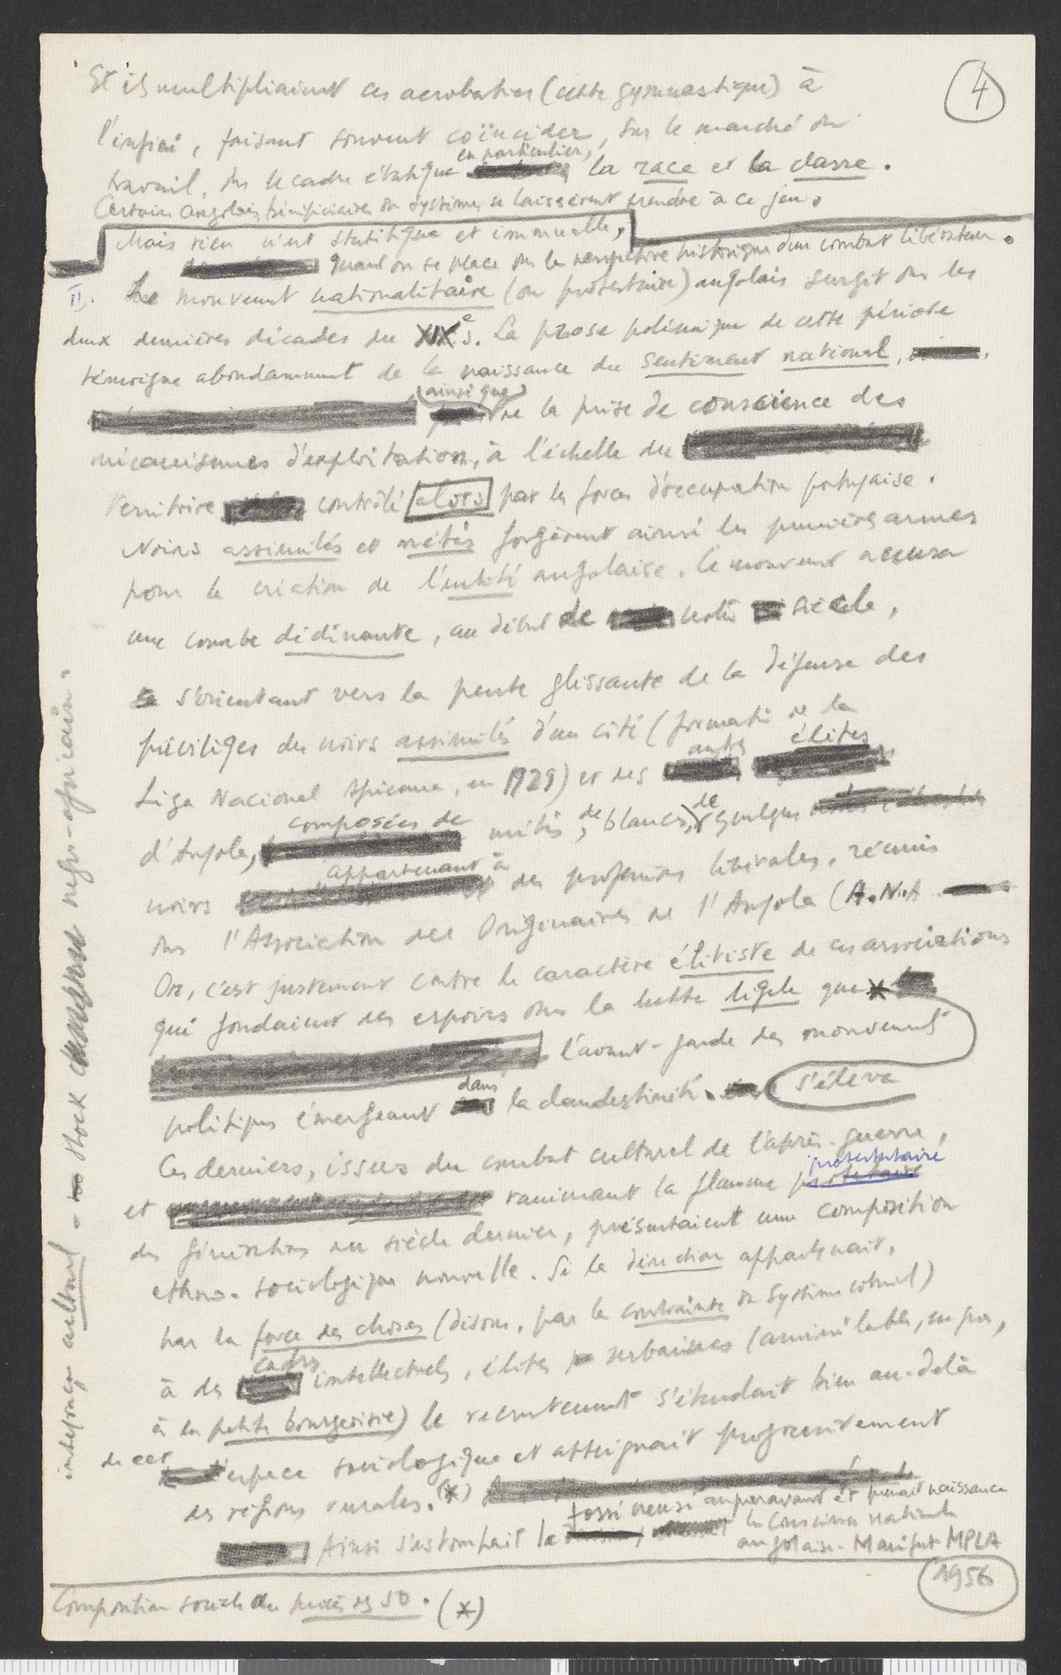 4
Et ils multipliaient ces acrobaties (cette gymnastique) à
l'infini, faisant souvent coïncider, sur le marché du
en particulier,
travail, ds le cadre étatique la race et la classe.
Certains Angolais, bénéficiaires du système se laissèrent prendre à ce jeu.
Mais rien n'est statitique et immuable,
quand on se place ds la perspective historique d'un combat libérateur.
II. Le mouvement nationalitaire (ou protestaire) angolais surgit ds les
deux dernières décades du XIXe s. La prose polémique de cette période
témoigne abondamment de la naissance du sentiment national,
(ainsi que)
de la prise de conscience des
mécanismes d'exploitation, à l'échelle du
Territoire contrôlé alors par les forces d'occupation portugaise.
Noirs assimilés et métis forgèrent ainsi les premières armes
pour la création de l'entité angolaise. Ce mouvement accusa
une courbe déclinante, au début de notre siècle,
s'orientant vers la pente glissante de la défense des
privilèges des noirs assimilés d'un côté (formation de la
autres élites
Liga Nacional Africana, en 1929) et des
composées de
d'Angola, métis, de blancs, de quelques
appartenant à
noirs des professions libérales, réunis
ds l'Association des Originaires de l'Angola (A.N.A
Or, c'est justement contre le caractère élitiste de ces associations
qui fondaient des espoirs ds la lutte légale que
l'avant-garde des mouvements
dans
politiques émergeant la clandestinité. s'éleva
Ces derniers, issus du combat culturel de l'après-guerre,
protestataire
et ranimant la flamme
des générations du siècle dernier, présentaient une composition
ethno-sociologique nouvelle. Si la direction appartenait,
par la force des choses (disons, par la contrainte du système colonial)
cadres
à des intellectuels, élites urbanisées (assimilables, en gros,
à la petite bourgeoisie) le recrutement s'étendait bien au-delà
de cet espace sociologique et atteignait progressivement
les régions rurales. (*)
fossé creusé auparavant et prenait naissance
Ainsi s'estompait le la conscience nationale
angolaise. Manifeste MPLA
1956
Composition sociale du procès des 50. (*)
culturel - stock négro-africain.